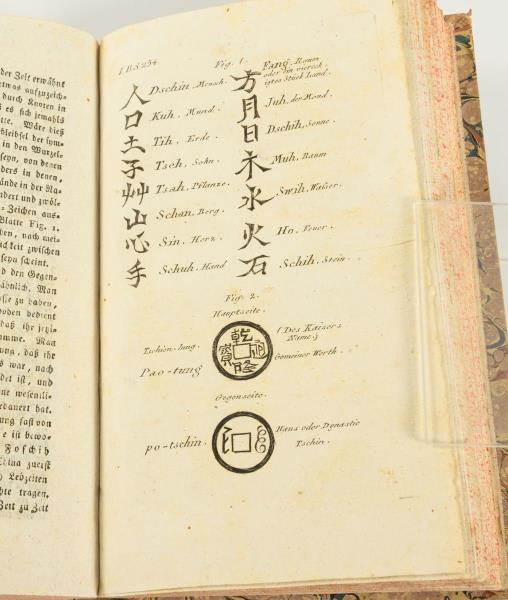 der Zeit erwähnt
etwas aufzuzeich-
durch Knoten in
es sich jemahls
tte. Wäre dieß
bleibsel der sym-
in den Wurzel-
seyn, von denen
ders in denen,
tände in der Na-
ndert und zwölf-
-Zeichen aus-
Blatte Fig. 1.
ben, nach mei-
ickeit zwischen
seyn scheint.
d den Gegen-
ähnlich. Man
sie zu haben,
oden bedient
daß ihr jetzi-
amme. Man
ung, daß ihr
s war, nach
del ist, und
ne wesentli-
edauert hat.
ung fast von
e ist bewo-
Foschih
China zuerst
) Lebzeiten
chte tragen.
Zeit zu Zeit
I.B.S. 254.
Fig. 1.
人 Dschin. Mensch.
口 Kuh. Mund.
土 Tih. Erde.
子 Tseh. Sohn.
艸 Tsah. Pflanze.
山 Schan. Berg.
心 Sin. Herz.
手 Schuh. Hand
方 Fang. Raum
oder ein viereck
igtes Stück Land.
月 Juh. der Mond.
日 Dschih. Sonne.
木 Muh. Baum
水 Swih. Waßer.
火 Ho. Feuer.
石 Schih. Stein.
Fig. 2.
Hauptseite.
Tschien-lung.
(Des Kaisers
Name.)
Pao-tung
乾隆通寶
Gemeiner Werth.
Gegenseite.
po-tschin.
Haus oder Dynastie
Tschin.